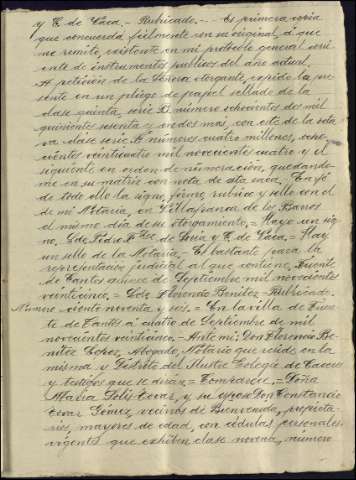 y C. de Vaca.- Rubricado.- - Es primera copia
que concuerda fielmente con su original, á que
me remito, existente en mi protocolo general corri
ente de instrumentos publicos del año actual.
A petición de la Señora otorgante, expido la pre
sente en un pliego de papel sellado de la
clase quinta, serie B. número ochocientos dos mil
quinientos setenta y en dos mas, con este de la octa
va clase serie A números cuatro millones, ocho
cientos veinticuatro mil novecientos cuatro y el
siguiente en orden de numeración, quedando
me en su matriz con nota de esta saca. En fé
de todo ello la signo, firmo, rubrico y sello con el
de mi Notaria, en Villafranca de los Barros
el mismo dia de su otorgamiento.= Hay un sig
no. Ldo Pedro Fdez de Soria y C. de Vaca.= Hay
un sello de la Notaria.= Es bastante para la
representación judicial al que contiene, Fuente
de Cantos de Septiembre mil novecientos
veinticinco.= Ldo Florencio Benitez= Rubricado.
Número ciento noventa y seis.= En la villa de Fuen
te de Cantos á cuatro de Septiembre de mil
novecientos veinticinco.- Ante mi: Don Florencio Be-
nitez Lopez, Abogado, Notario que reside en la
misma y Distrito del Ilustre Colegio de Caceres
y testigos que se dirán:= Comparecen:= Doña
Maria Solis Tovar, y su esposo Don Constancio
Tovar Gómez, vecinos de Bienvenida, propieta-
rios, mayores de edad, con cédulas personales
vigentes que exhiben clase novena, número